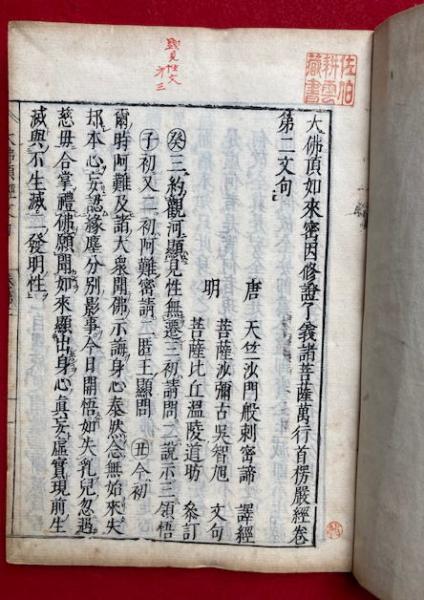 佐伯
耕雲
藏書
大佛頂如來密因修證了義諸菩薩萬行首楞嚴經卷
第二文句
唐 天竺沙門般剌密諦 譯經
明 菩薩沙彌古吳智旭 文句
菩薩比丘溫陵道昉 參訂
癸三約觀河顯見性無遷三初請問二說示三領悟
子初又二初阿難密請二匿王顯問 丑今初
爾時阿難及諸大衆聞佛示誨身心泰然念無始來失
却本心妄認緣塵分別影事今日開悟如失乳兒忽遇
慈母合掌禮佛願聞如來顯出身心真妄虛實現前生
滅與不生滅二發明性